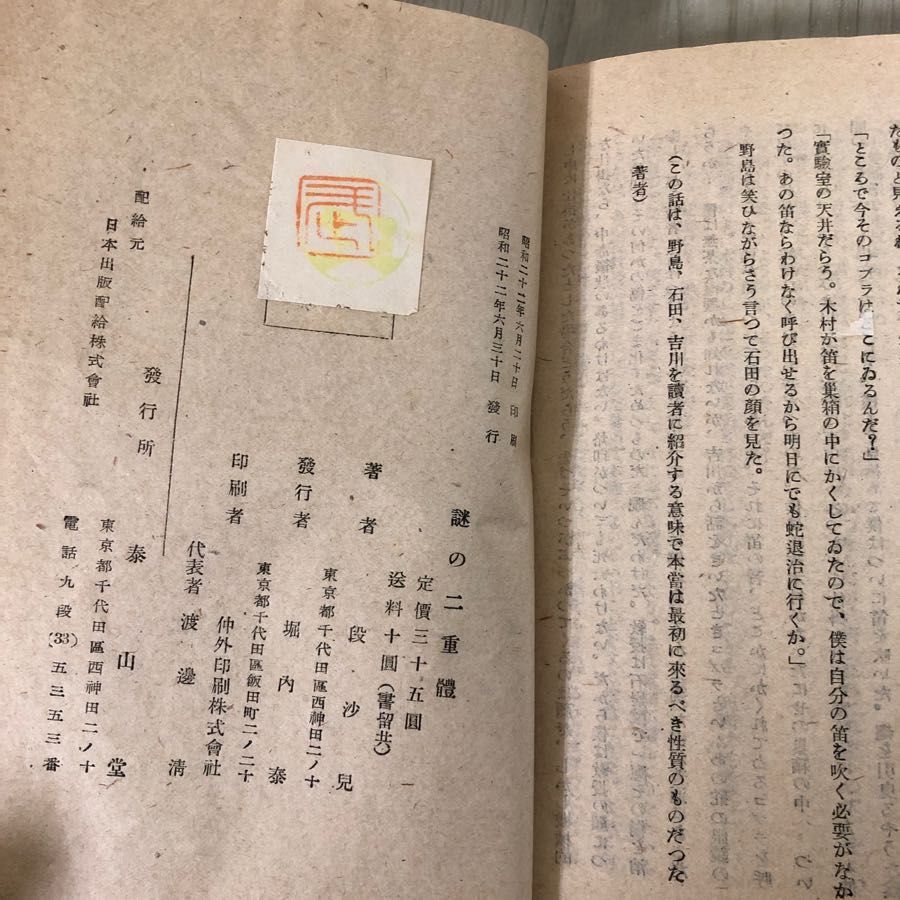 「ところで今そのコブラはどこにゐるんだ?」
「實驗室の天井だらう。木村が笛を巣箱の中にかくしてゐたので、僕は自分の笛を吹く必要がなか
つた。あの笛ならわけなく呼び出せるから明日にでも蛇退治に行くか。」
野島は笑ひながらさう言つて石田の顔を見た。
(この話は、野島、石田、吉川を讀者に紹介する意味で本當は最初に來るべき性質のものだつた
著者)
昭和二十二年六月二十日 印刷
昭和二十二年六月三十日 發行
謎の二重體
定價三十五圓
送料十圓(書留共)
著者 段沙兒
東京都千代田區西神田二ノ十
發行者 堀內泰
東京都千代田區飯田町二ノ二十
印刷者 仲外印刷株式會社
代表者 渡邊淸
發行所 泰山堂
東京都千代田區西神田二ノ十
電話九段(33)五三五三番
配給元
日本出版配給株式會社